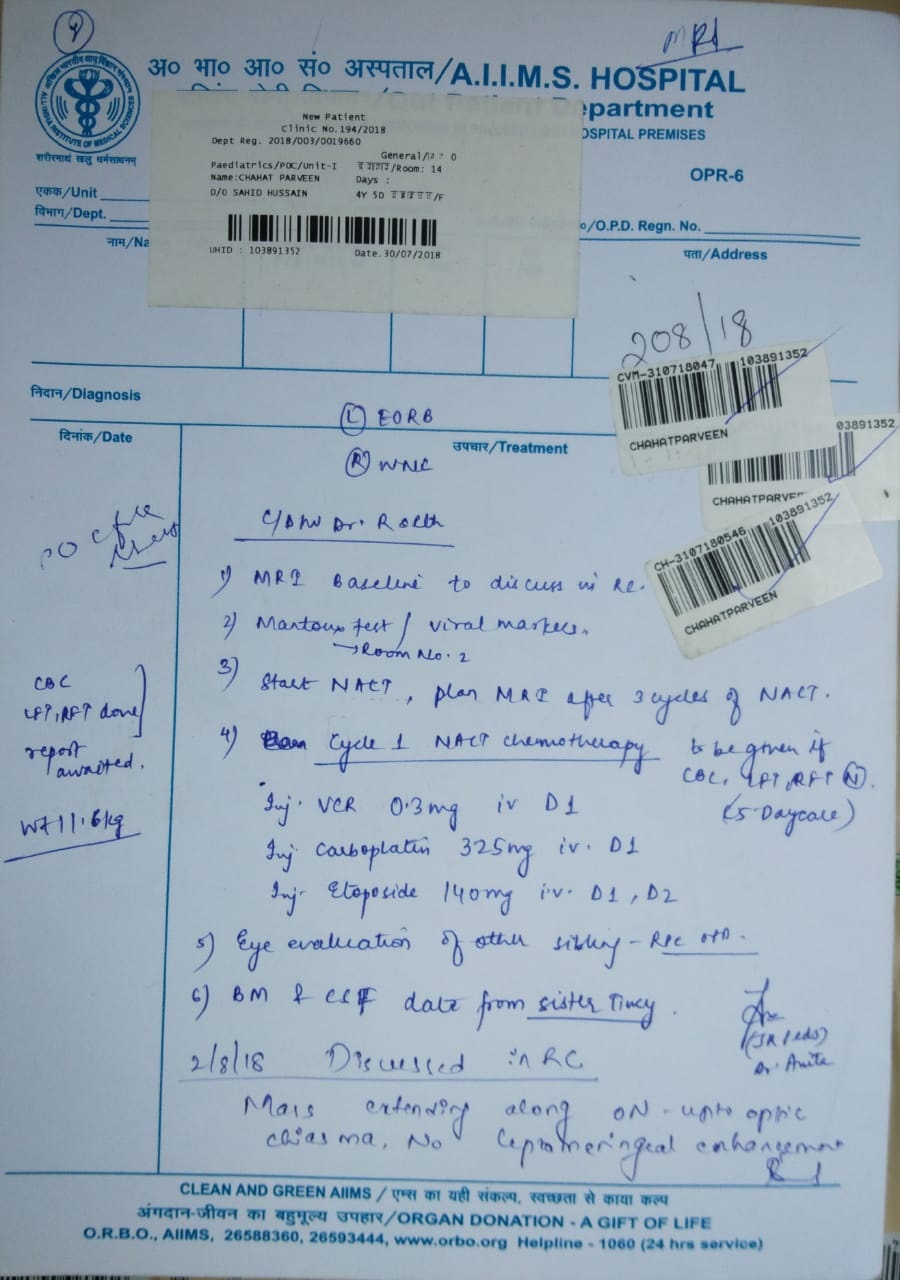 MRI
अ० भा० आ० सं० अस्पताल/A.I.I.M.S. HOSPITAL
/Out Patient Department
HOSPITAL PREMISES
ALL INDIA INSTITUTE OF MEDICAL SCIENCES
शरीरमाद्यं खलु धर्मसाधनम्
OPR-6
New Patient
Clinic No.194/2018
Dept Reg. 2018/003/0019660
General/ 0
Paediatrics/POC/Unit-I /Room: 14
Name:CHAHAT PARVEEN Days :
D/O SAHID HUSSAIN 4Y 5D /F
UHID : 103891352 Date.30/07/2018
एकक/Unit
विभाग/Dept.
o/O.P.D. Regn. No.
नाम/Na
पता/Address
208/18
CVM-310718047 103891352
CHAHATPARVEEN
03891352
CHAHATPARVE
CH-3107180546 103891352
CHAHATPARVEEN
निदान/Diagnosis
(L) EORB
दिनांक/Date
उपचार/Treatment
(R) WNL
C/D/W Dr.
1) MRI Baseline to discuss in RC.
2) Mantoux test / viral markers.
→Room No. 2
3) Start NACT, plan MRI after 3 cycles of NACT.
CBC
LFT, RFT done
report
awaited.
Wt 11.6kg
4) Cycle 1 NACT chemotherapy to be given if
CBC, LFT, RFT (N).
(5-Daycare)
Inj. VCR 0.3mg iv D1
Inj Carboplatin 325mg iv. D1
Inj- Etoposide 140mg iv. D1, D2
5) Eye evaluation of other sibling - RPC OPD.
6) BM & CSF date from sister Tincy.
(JR Peds)
Dr. Anita
2/8/18 Discussed in RC
Mass extending along ON - upto optic
chiasma, No leptomeningeal enhancement
CLEAN AND GREEN AIIMS / एम्स का यही संकल्प, स्वच्छता से काया कल्प
अंगदान-जीवन का बहुमूल्य उपहार/ORGAN DONATION - A GIFT OF LIFE
O.R.B.O., AIIMS, 26588360, 26593444, www.orbo.org Helpline - 1060 (24 hrs service)